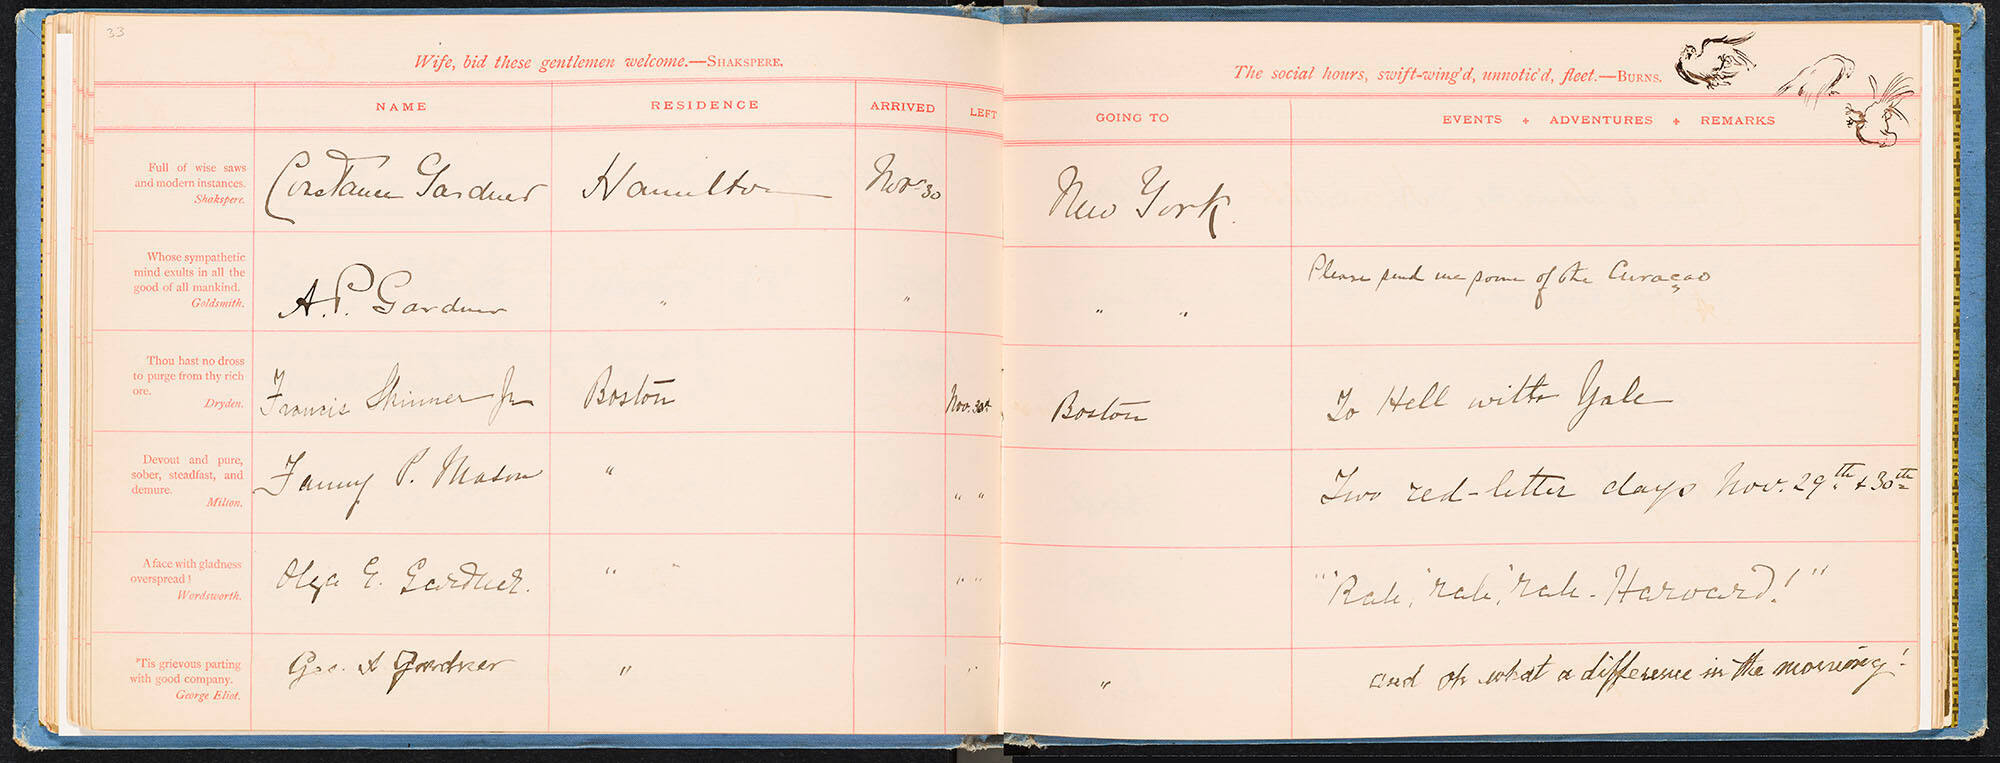 33
Wife, bid these gentlemen welcome.—SHAKSPERE.
NAME RESIDENCE ARRIVED LEFT
Full of wise saws
and modern instances.
Shakspere.
Constance Gardner Hamilton Nov 30
Whose sympathetic
mind exults in all the
good of all mankind.
Goldsmith.
A. P. Gardner " "
Thou hast no dross
to purge from thy rich
ore.
Dryden.
Francis Skinner Jr Boston Nov. 30th
Devout and pure,
sober, steadfast, and
demure.
Milton.
Fanny P. Mason " " "
A face with gladness
overspread!
Wordsworth.
Olga E. Gardner. " " " "
'Tis grievous parting
with good company.
George Eliot.
Geo. A Gardner " "
The social hours, swift-wing'd, unnotic'd, fleet.—BURNS.
GOING TO EVENTS + ADVENTURES + REMARKS
New York.
" " Please send me some of the Curaçao
Boston To Hell with Yale
Two red-letter days Nov. 29th & 30th
"'Rah,' 'rah,' 'rah - Harvard!"
" and oh what a difference in the morning!